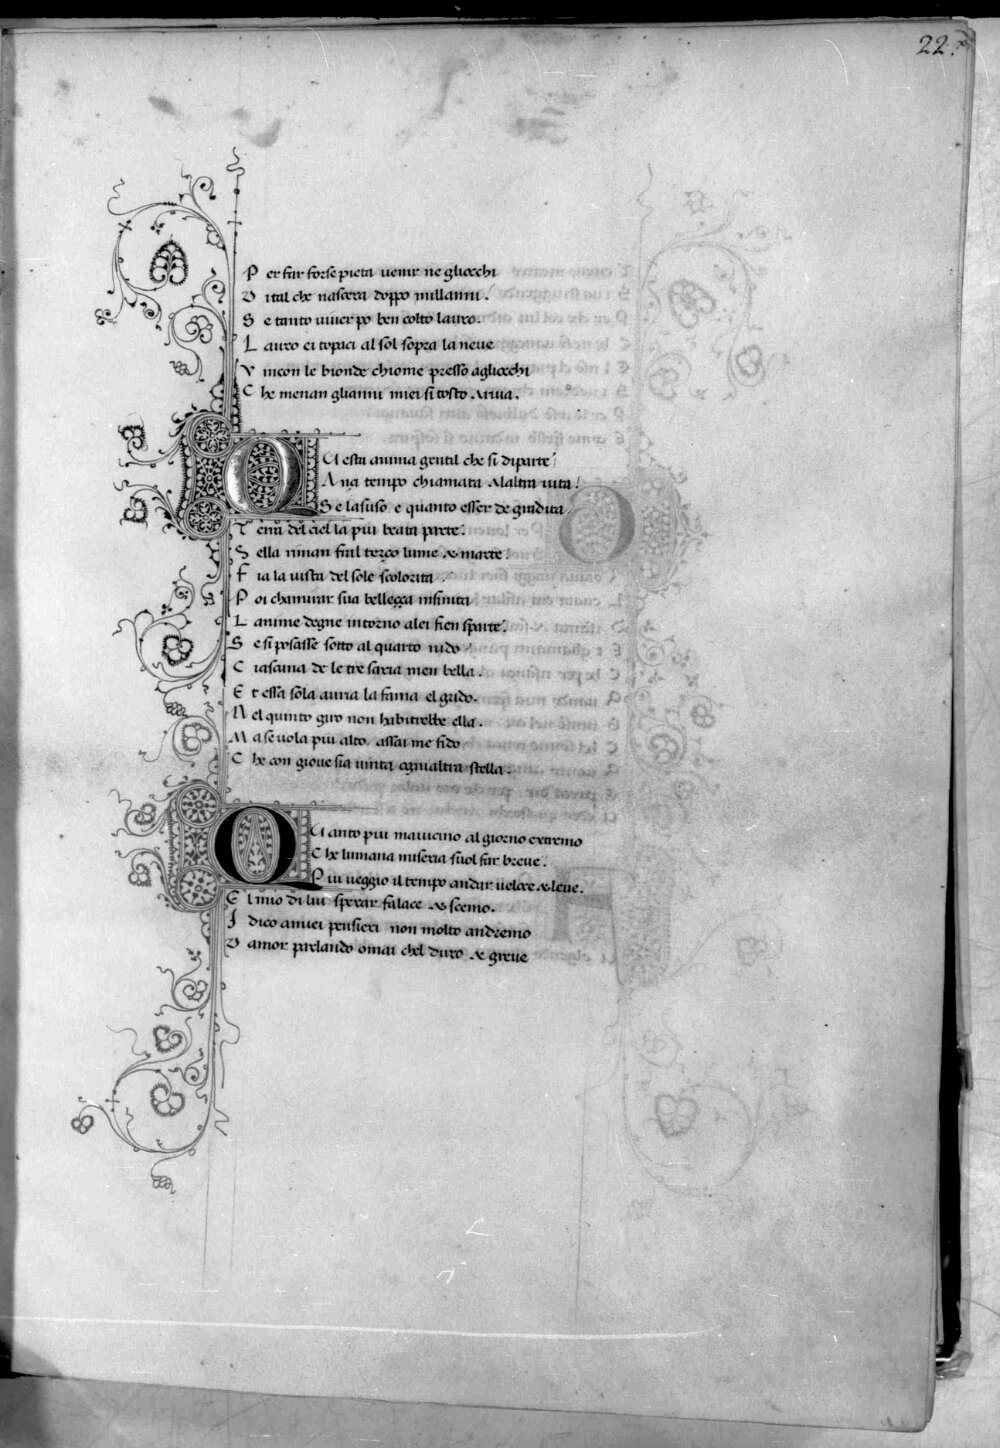 22
P er far forse pieta uenir ne gliocchi
D ital che nascera doppo millanni.
S e tanto uiuer po ben colto lauro.
L auro ei topaci al sol sopra la neue
V incon le bionde chiome presso agliocchi
C he menan glianni miei si tosto ariua.
QUesta anima gentil che si diparte
A nçi tempo chiamata alaltra uita:
S e lasuso e quanto esser de gradita
T erra del ciel la piu beata parte.
S ella riman fral terço lume & marte
F ia la uista del sole scolorita
P oi chamirar sua belleçça infinita
L anime degne intorno alei fien sparte.
S e si posasse sotto al quarto nido
C iascuna de le tre saria men bella.
E t essa sola auria la fama el grido.
N el quinto giro non habitrebbe ella.
M a se uola piu alto, assai me fido
C he con gioue sia uinta ogni altra stella.
QUanto piu mauicino al giorno extremo
C he lumana miseria suol far breue.
P iu ueggio il tempo andar ueloce & leue.
E l mio di lui sperar fallace & scemo.
I dico amiei pensieri non molto andremo
D amor parlando omai chel duro & greue